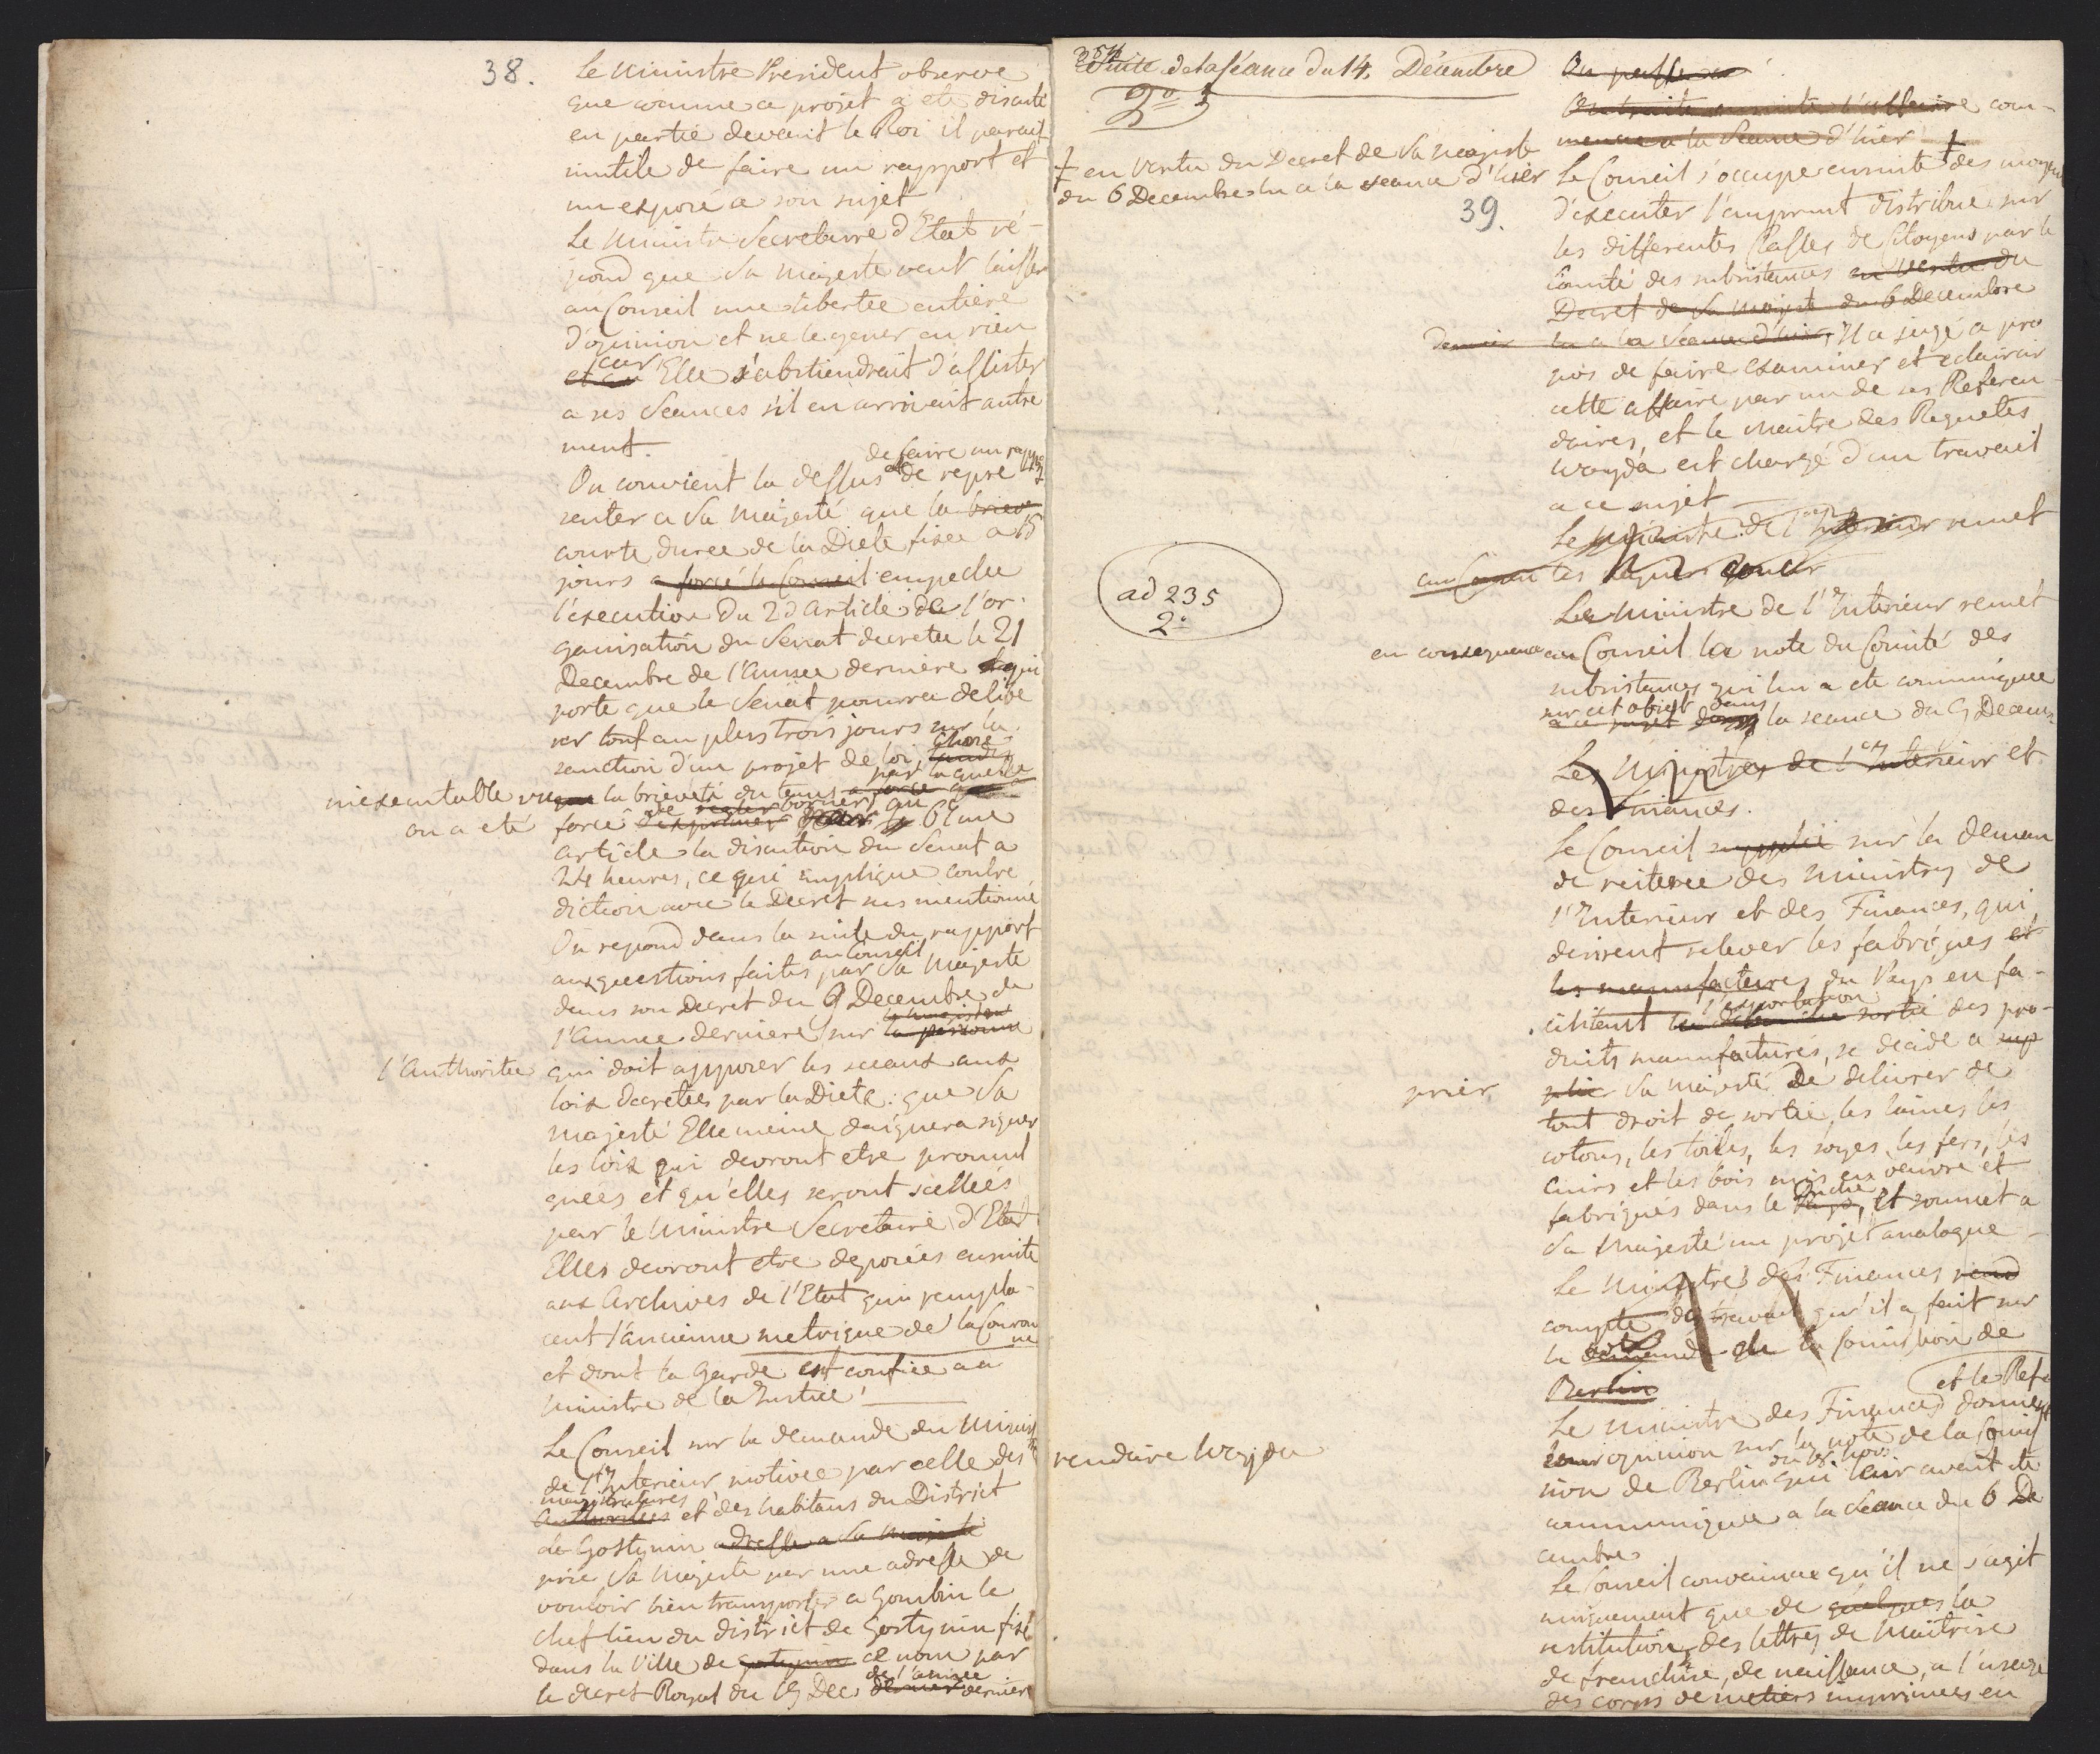 38.
Le Ministre President observe
que comme ce projet a eté discuté
en partie devant le Roi il parait
inutile de faire un rapport et
un exposé a son sujet
Le Ministre Secretaire d'Etat ré-
pond que Sa Majesté veut laisser
au Conseil une libertée entiere
d'opinion et ne le gener en rien
car
et Elle s'abstiendrait d'assister
a ses Seances s'il en arrivait autre
ment.
de faire un rapport
On convient la dessus et de repre
senter a Sa Majesté que la brieve
courte duree de la Diete fixée a 15
jours a forcé le Conseil empeche
l'execution du 23 article de l'or-
ganisation du Senat decretée le 21
Decembre de l'Année derniere qui
porte que le Senat pourra delibe
rer tout au plus trois jours sur la
sanction d'un projet de loi, chose
inexecutable vu la brieveté du tems par laquelle
on a eté forcé de borner au 6eme
article la discution du Senat a
24 heures, ce qui implique contre
diction avec le Decret sus mentionné
On repond dans la suite du rapport
au Conseil
aux questions faites par Sa Majesté
dans son Decret du 9 Decembre de
l'Année derniere sur la personne
l'Authoritée qui doit apposer les sceaux aux
loix decretées par la Diete: que Sa
Majesté Elle meme daignera signer
les loix qui devront etre promul
guées et qu'elles seront scellées
par le Ministre Secretaire d'Etat
Elles devront etre deposées ensuite
aux Archives de l'Etat qui rempla-
cent l'ancienne metrique de la Couron
ne
et dont la Garde est confiée au
Ministre de la Justice
Le Conseil sur la demande du Minist
de l'Interieur motivée par celle des
magistratures
Authoritées et des habitans du District
de Gostynin adresse a Sa Majesté
prie Sa Majesté par une adresse de
vouloir bien transporter a Gombin le
chef lieu du district de Gostynin fixé
dans la Ville de Gostynin ce nom par
de l'année
le decret Royal du 19 Dec dernier derniere
354
Suite de la Séance du 14. Décembre
2o
† en vertu du Decret de Sa Majesté
du 6 Decembre lu a la seance d'hier
39.
ad 235
2o
On passe
On traite ensuite l'affaire com-
mencée a la Seance d'hier †
Le Conseil s'occupe ensuite † des moyens
d'executer l'emprunt distribué sur
les differentes Classes de Citoyens par le
Comité des subsistances en vertu du
Decret de Sa Majesté du 6 Decembre
dernier lu a la Seance d'hier, Il a jugé a pro
pos de faire examiner et eclaircir
cette affaire par un de ses Referen
daires, et le Maitre des Requetes
Woyda est chargé d'un travail
a ce sujet
Le Ministre de l'Interieur remet
au Conseil les
Le Ministre de l'Interieur remet
en consequence au Conseil la note du Comité des
subsistances qui lui a eté communiquée
sur cet objet dans
a ce sujet dans la seance du 9 Decem
Les Ministres de l'Interieur et
des Finances.
Le Conseil supplié sur la deman
de reiterée des Ministres de
l'Interieur et des Finances, qui
desirent relever les fabriques et
les manufactures du Pays en fa-
l'exportation
cilitant la sortie des pro-
duits manufacturés, se decide a sup
prier plier Sa Majesté de delivrer de
tout droit de sortie, les laines les
cotons, les toiles, les soyes les fers, les
cuirs et les bois mis en oeuvre et
Duché
fabriqués dans le Pays, et soumet a
Sa Majesté un projet analogue
Le Ministre des Finances rend
compte des travaux qu'il a fait sur
la demande de la Comission de
Berlin
et le Refe
Le Ministre des Finances donnent
rendaire Woyda
leur opinion sur la note de la Comis
du 18 Nov:
sion de Berlin qui leur avait eté
communiquée a la Seance du 6 De
cembre
Le Conseil convaincu qu'il ne s'agit
uniquement que de quelques la
restitution des lettres de Maitrise
de franchise, de naissance, a l'usage
des corps de metiers imprimées en